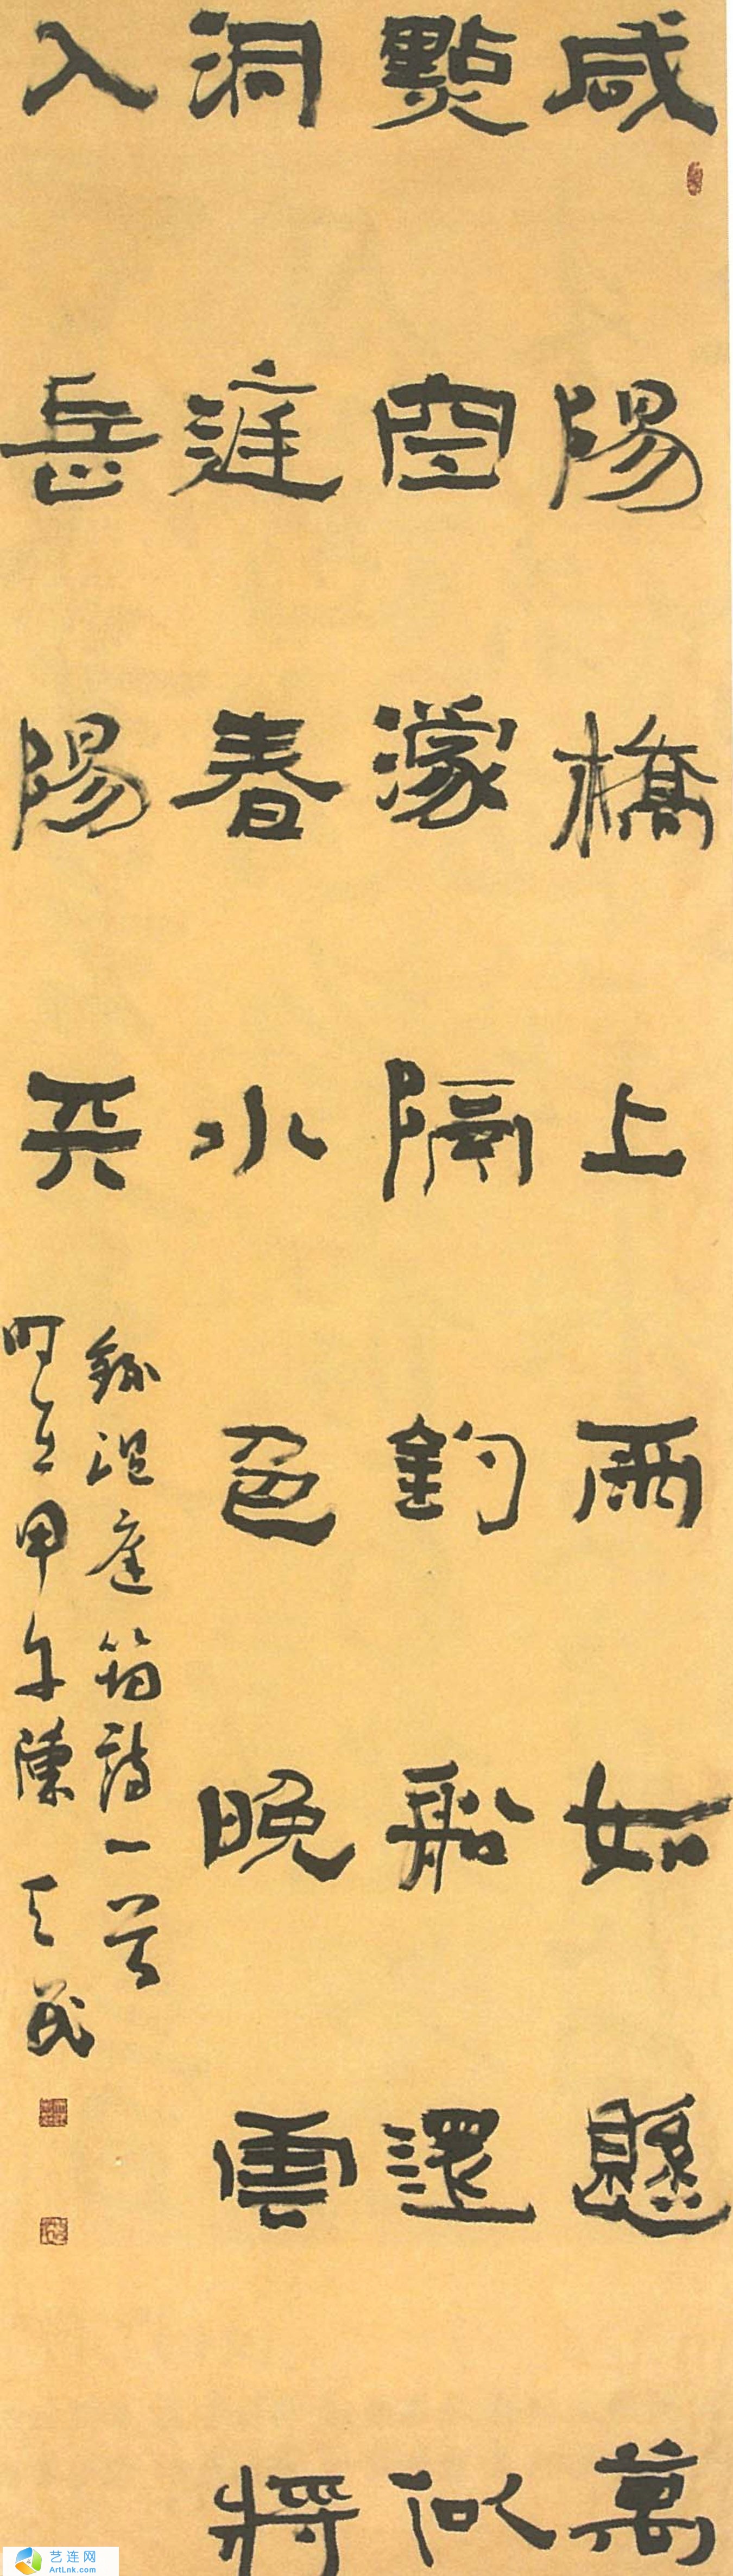 咸陽橋上雨如懸萬
點空濛隔釣船還似
洞庭春水色晚雲將
入岳陽天
錄温庭筠詩一首
時在甲午陳天民
艺连网
ArtLnk.com